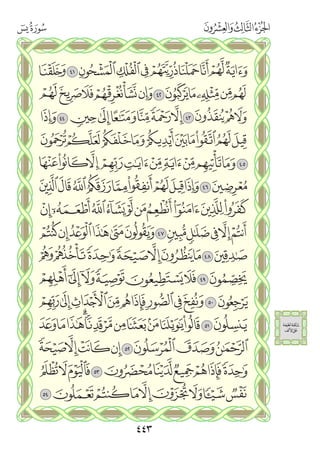 الجزء الثالث والعشرون
سورة يس
وَءَايَةٌ لَّهُمْ أَنَّا حَمَلْنَا ذُرِّيَّتَهُمْ فِي الْفُلْكِ الْمَشْحُونِ ٤١ وَخَلَقْنَا
لَهُم مِّن مِّثْلِهِ مَا يَرْكَبُونَ ٤٢ وَإِن نَّشَأْ نُغْرِقْهُمْ فَلَا صَرِيخَ لَهُمْ
وَلَا هُمْ يُنقَذُونَ ٤٣ إِلَّا رَحْمَةً مِّنَّا وَمَتَاعًا إِلَىٰ حِينٍ ٤٤ وَإِذَا
قِيلَ لَهُمُ اتَّقُوا مَا بَيْنَ أَيْدِيكُمْ وَمَا خَلْفَكُمْ لَعَلَّكُمْ تُرْحَمُونَ
٤٥ وَمَا تَأْتِيهِم مِّنْ ءَايَةٍ مِّنْ ءَايَاتِ رَبِّهِمْ إِلَّا كَانُوا عَنْهَا
مُعْرِضِينَ ٤٦ وَإِذَا قِيلَ لَهُمْ أَنفِقُوا مِمَّا رَزَقَكُمُ اللَّهُ قَالَ الَّذِينَ
كَفَرُوا لِلَّذِينَ ءَامَنُوا أَنُطْعِمُ مَن لَّوْ يَشَاءُ اللَّهُ أَطْعَمَهُ إِنْ
أَنتُمْ إِلَّا فِي ضَلَالٍ مُّبِينٍ ٤٧ وَيَقُولُونَ مَتَىٰ هَٰذَا الْوَعْدُ إِن كُنتُمْ
صَادِقِينَ ٤٨ مَا يَنظُرُونَ إِلَّا صَيْحَةً وَاحِدَةً تَأْخُذُهُمْ وَهُمْ
يَخِصِّمُونَ ٤٩ فَلَا يَسْتَطِيعُونَ تَوْصِيَةً وَلَا إِلَىٰ أَهْلِهِمْ
يَرْجِعُونَ ٥٠ وَنُفِخَ فِي الصُّورِ فَإِذَا هُم مِّنَ الْأَجْدَاثِ إِلَىٰ رَبِّهِمْ
يَنسِلُونَ ٥١ قَالُوا يَا وَيْلَنَا مَن بَعَثَنَا مِن مَّرْقَدِنَا هَٰذَا مَا وَعَدَ
الرَّحْمَٰنُ وَصَدَقَ الْمُرْسَلُونَ ٥٢ إِن كَانَتْ إِلَّا صَيْحَةً
وَاحِدَةً فَإِذَا هُمْ جَمِيعٌ لَّدَيْنَا مُحْضَرُونَ ٥٣ فَالْيَوْمَ لَا تُظْلَمُ
نَفْسٌ شَيْئًا وَلَا تُجْزَوْنَ إِلَّا مَا كُنتُمْ تَعْمَلُونَ ٥٤
٤٤٣